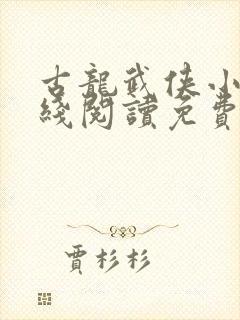 古龍武俠小
綫閱讀免費
賈杉杉